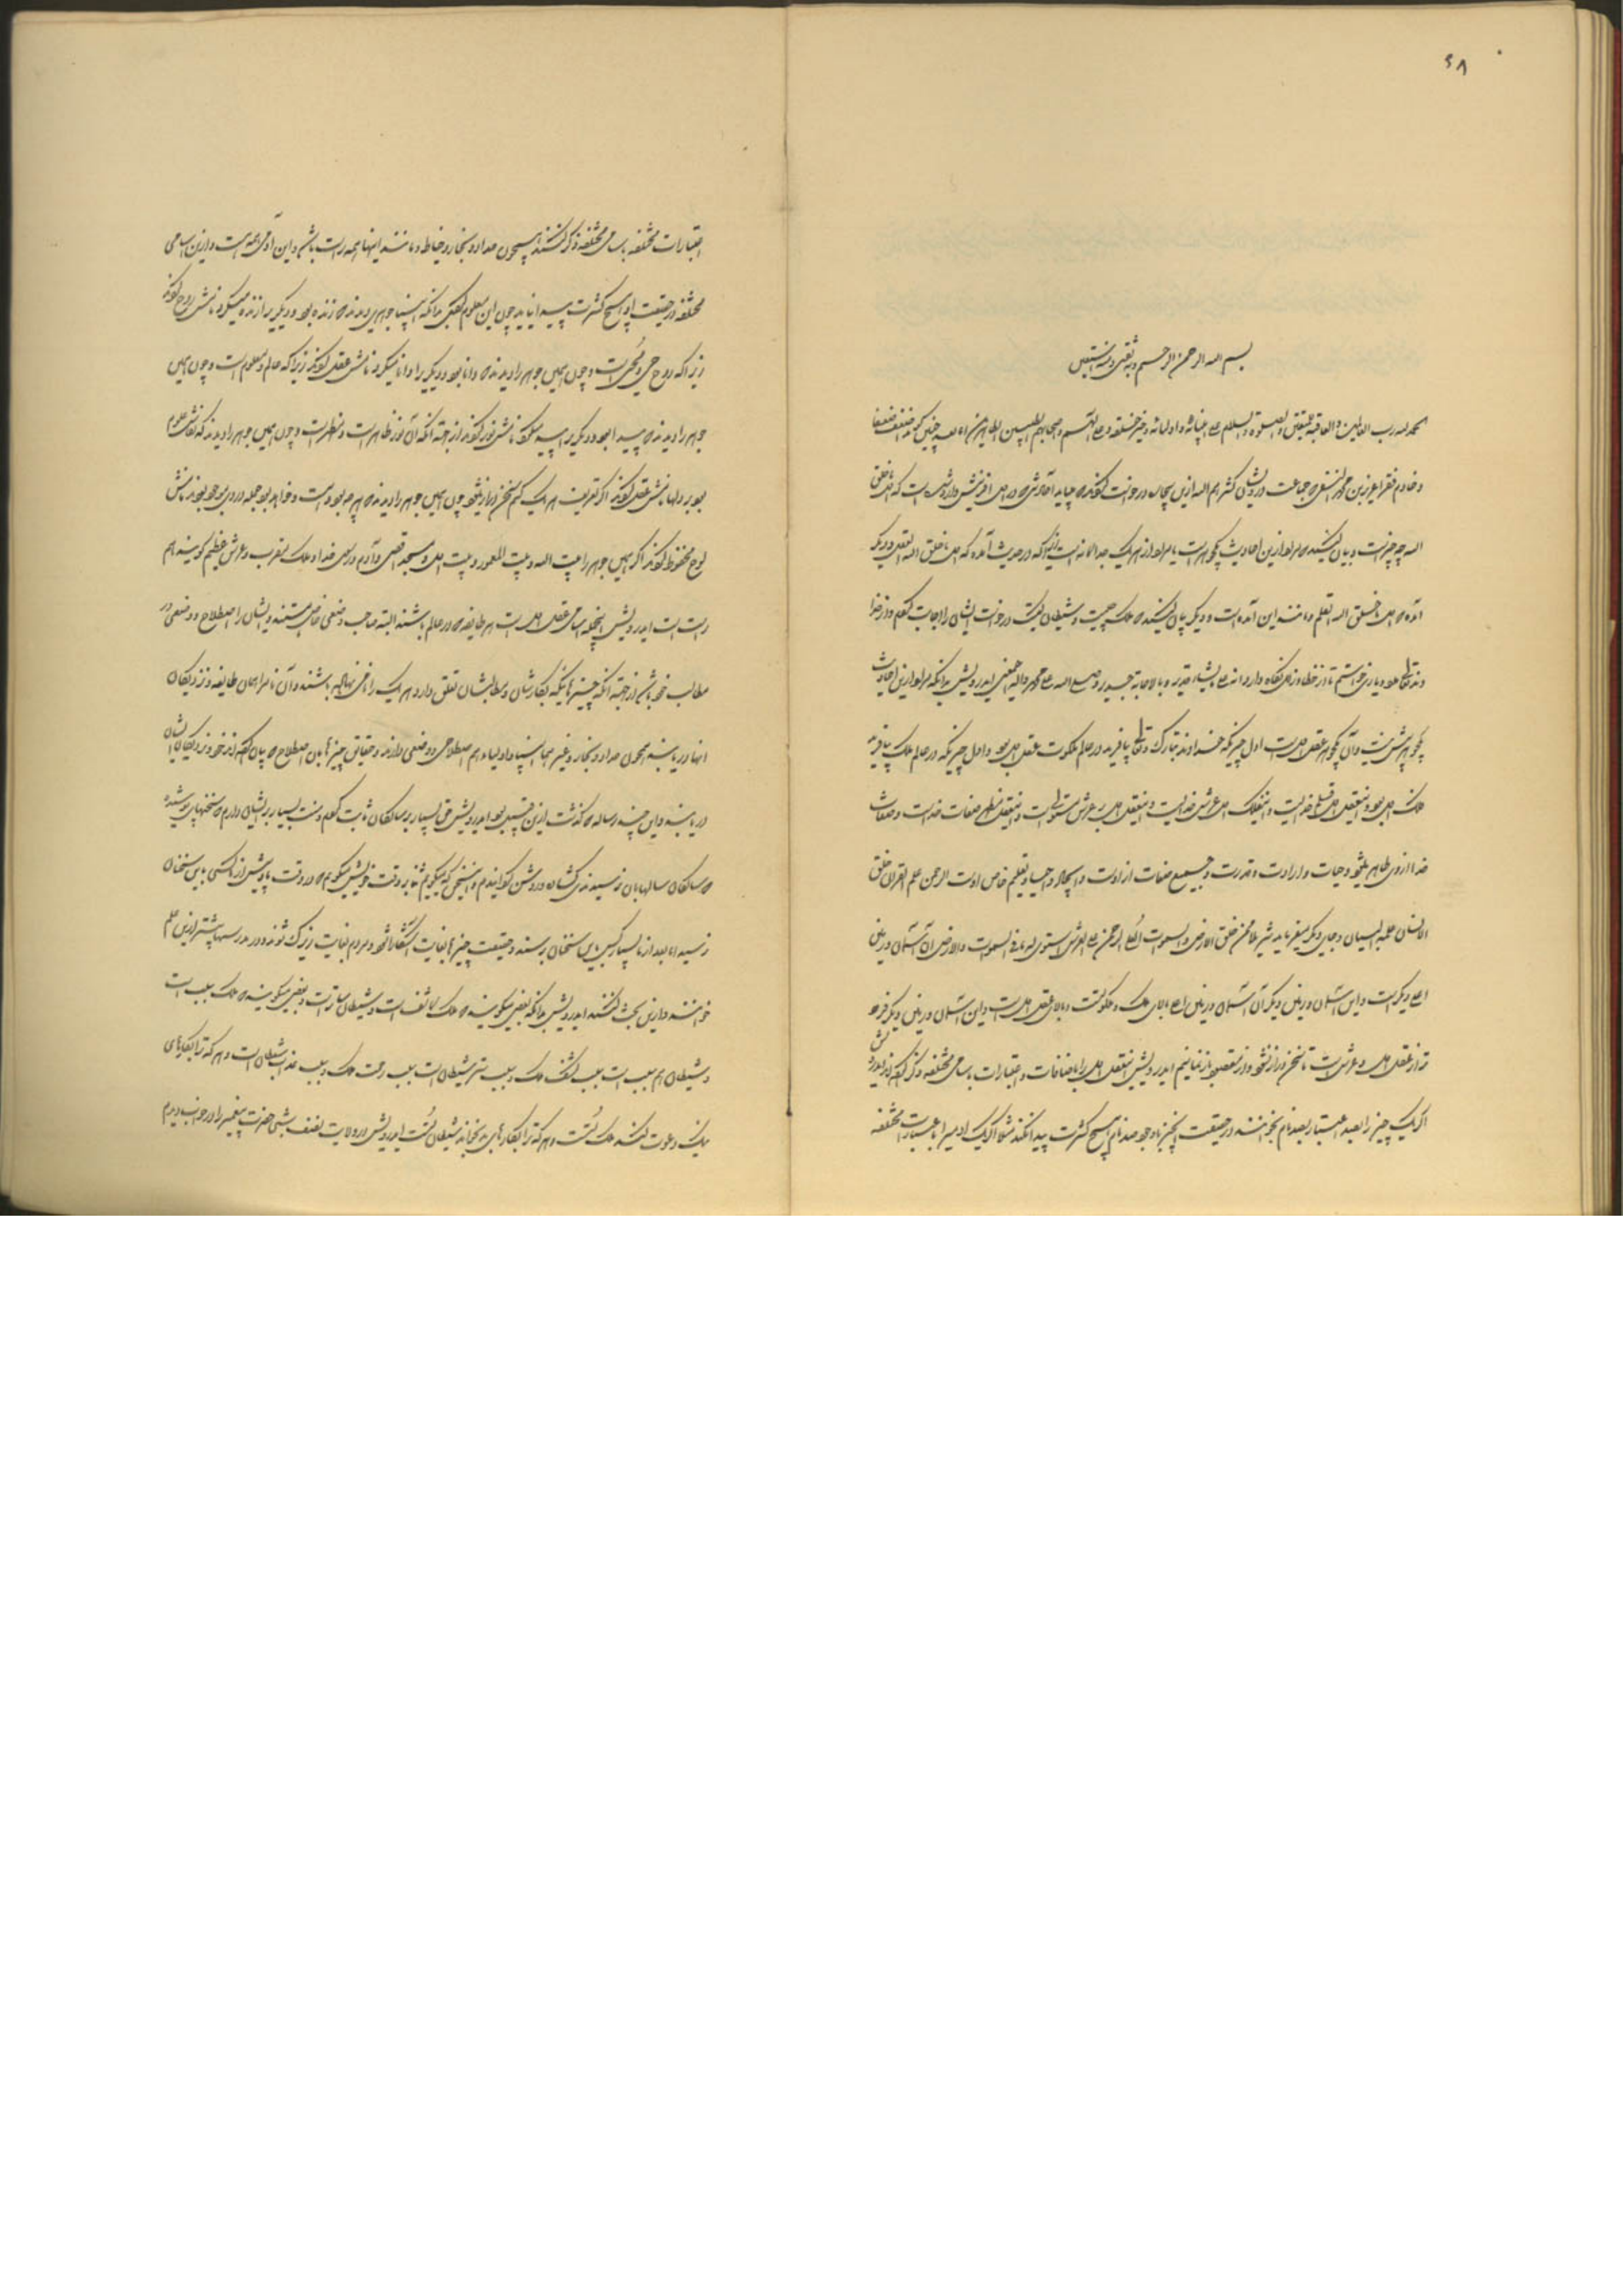 ۶۸
بسم الله الرحمن الرحیم و به ثقتی و منه استعین
الحمد لله رب العالمین و العاقبة للمتقین والصلوة والسلام علی انبیائه و اولیائه و خیر خلقه و علی آلهم و اصحابهم الطیبین الطاهرین اما بعد چنین گوید اضعف ضعفا
و خادم فقرا عزیز بن محمد النسفی که جماعت درویشان کثرهم الله ازین بیچاره درخواست کردند که میباید که رساله در اول آفرینش و که اول ما خلق
الله چه چیزست و بیان کنید که مراد ازین احادیث یک جوهرست یا مراد از هر یک جداگانه است زیرا که در حدیث آمده که اول ما خلق الله العقل و دیگر
آمده که اول ما خلق الله القلم و مانند این آمده است و دیگر بیان کنید که ملک چیست و شیطان کیست درخواست ایشان را اجابت کردم و از خدا
وند تعالی مدد و یاری خواستم تا از خطا و زلل نگاه دارد انه علی ما یشاء قدیر و بالاجابة جدیر و صلی الله علی محمد و آله اجمعین ای درویش بدانکه مراد ازین احادیث
یک جوهر بیش نیست و آن یک جوهر عقل اول است اول چیزیکه خداوند تبارک و تعالی بیافرید در عالم ملکوت عقل اول بود و اول چیزیکه در عالم ملک بیافرید
فلک اول بود و این عقل اول قلم خدایست و این فلک اول عرش خدایست و این عقل اول بر عرش مستولیست و این عقل مظهر صفات خداست و صفات
خدا ازوی ظاهر میشود و حیات و ارادت و قدرت و جمیع صفات از اوست و ایجاد و احیا و تعلیم خاص اوست الرحمن علم القران خلق
الانسان علمه البیان و جای دیگر میفرماید تنزیلا ممن خلق الارض والسموات العلی الرحمن علی العرش استوی له ما فی السموات و الارض آن آسمان و زمین
اعلی دیگرست و این آسمان و زمین دیگر آن آسمان و زمین را علی بالای ملک و ملکوتست و بالای عقل اول است و این آسمان و زمین دیگر فرو
تر از عقل اول و عرش است تا سخن دراز نشود و از مقصود باز نمانیم ای درویش این عقل اول را باضافات و اعتبارات باسامی مختلفه ذکر کرده اند ای درویش
اگر یک چیز را بصد اعتبار بصد نام بخوانند در حقیقت آن چیز باوجود صد نام هیچ کثرت پیدا نکند مثلا اگر یک آدمی را باعتبارات مختلفه
اعتبارات مختلفه باسامی مختلفه ذکر کنند همچون حداد و نجار و خیاط و مانند اینها همه راست باشد و این آدمی همه است و ازین اسامی
مختلفه در حقیقت او هیچ کثرت پیدا نیاید چون این معلوم کردی بدانکه انبیا جوهری دیدند که زنده بود و دیگری را زنده میکرد نامش روح کردند
زیرا که روح حی و محیی است و چون همین جوهر را دیدند که دانا بود و دیگری را دانا میکرد نامش عقل کردند زیرا که عالم و معلوم است و چون همین
جوهر را دیدند که پیدا بود و دیگری را پیدا میکرد نامش نور کردند از جهت آنکه آن نور ظاهرست و مظهرست و چون همین جوهر را دیدند که نقاش علوم
بود بر دلها نامش قلم کردند اگر تعریف هر یک کنم سخن دراز میشود چون همین جوهر را دیدند که هر چه بود و هست و خواهد بود جمله در وی موجود بودند نامش
لوح محفوظ کردند اگر همین جوهر را بیت الله و بیت المعمور و بیت اول و مسجد اقصی و آدم و رسول خدا و ملک مقرب و عرش عظیم گویند هم
راست است ای درویش این جمله اسامی عقل اول است هر طایفه که در عالم باشند البته صاحب وضعی خاص هستند و ایشان را اصطلاح و وضعی در
مطالب خود باشد از جهت آنکه چیزهائیکه بکار ایشان و مطالب ایشان تعلق دارد هر یک را نامی نهاده باشند و آن نامرا همان طایفه و نزدیکان
آنها دریابند همچون حداد و نجار و غیرهما انبیا و اولیا هم اصطلاحی و وضعی دارند و حقایق چیزها بدان اصطلاح که بیان کرده اند خود و نزدیکان ایشان
دریابند و این چند رساله که گذشت ازین قبیل بود ای درویش حق بسیار بر سالکان ثابت کردم و منت بسیار بر ایشان دارم که سخنهای پوشیده
که سالکان سالها بآن نرسیدندی گشاده و روشن گردانیدم و این سخن که میگویم نه بر وقت خویش میگویم که در وقت ما بیش از ما کسی بدین سخنان
نرسید اما بعد از ما بسیار کس بدین سخنان برسند و حقیقت چیزها بغایت آشکارا شود و مردم بغایت زیرک شوند و در مدرسها بیشتر ازین علم
خوانند و ازین بحث کنند ای درویش بدانکه بعضی میگویند که ملک کاشفست و شیطان ساترست و بعضی میگویند که ملک سبب است
و شیطان هم سبب است سبب کشف ملک و سبب ستر شیطان است سبب رحمت ملک و سبب عذاب شیطان است و هر که ترا بکارهای
نیک دعوت کند ملک تست و هر که ترا بکارهای بد بخواند شیطان تست ای درویش در ولایت نسف شبی حضرت پیغمبر را در خواب دیدم